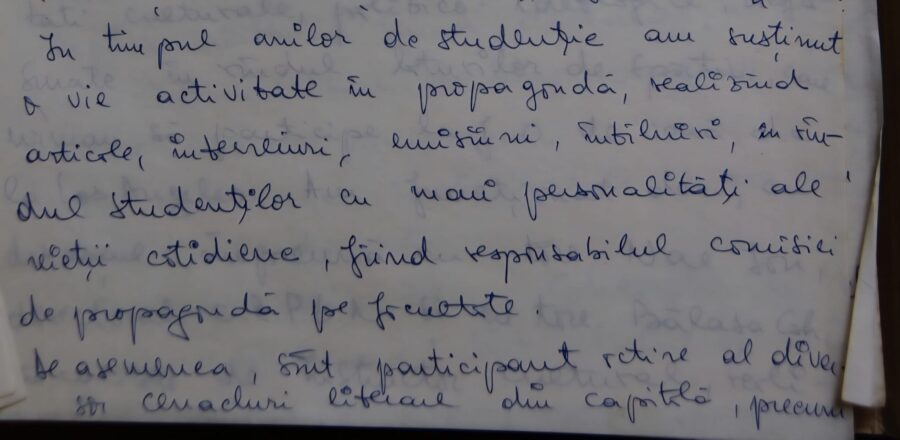 În timpul anilor de studenție am susținut
o vie activitate în propagandă, realizînd
articole, interviuri, emisiuni, întîlniri, în rîn-
dul studenților cu mari personalități ale
vieții cotidiene, fiind responsabilul comisiei
de propagandă pe facultate.
De asemenea, sînt participant activ al diver-
se cenacluri literare din capitală, precum